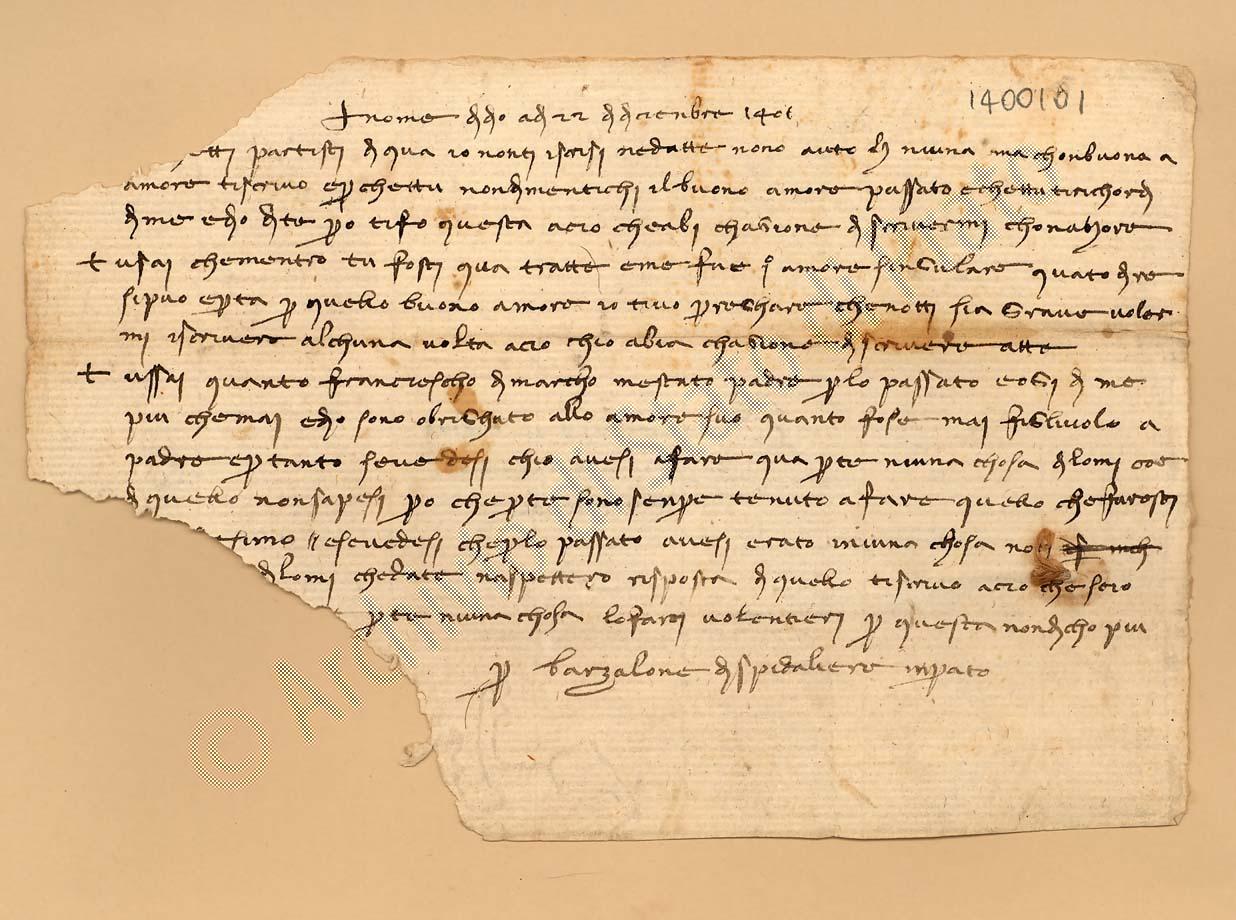 1400101
+ nome di dio adi 22 di dicenbre 1401
etti partisti di qua io nonti iscrisi nedatte nono auto niuna ma chonbuono a
amore tiscrivo e perchettu nondimentichi ilbuono amore passato echettu tirichordi
di me edio dite pero tifo questa acio cheabi chagione di scrivermi chonamore
tusai chementro tu fosti qua tratte eme fue amore singulare quato dire
sipuo e per ta per quello buono amore io tivo preghare chenotti sia grave voler
mi iscrivere alchuna volta acio chio abia chagione discrivere atte
tussai quanto franciescho dimarcho mestato padre perlo passato eogi di me
piu chemai edio sono obrighato allo amore suo quanto fose mai figliuolo a
padre epertanto sevedesi chio avesi afare qua perte niuna chosa dilomi coe
di quello nonsapesi pero cheperte sono senpre tenuto afare quello chefaresti
timo esevedesi cheperlo passato avesi erato iniuna chosa noti
dilomi chedate naspettero risposta di quello tiscrivo acio cheseio
perte niuna chosa lofarei volentieri per questa nondicho piu
per barzalone dispidaliere inprato
© Archivio di Stato di Prato